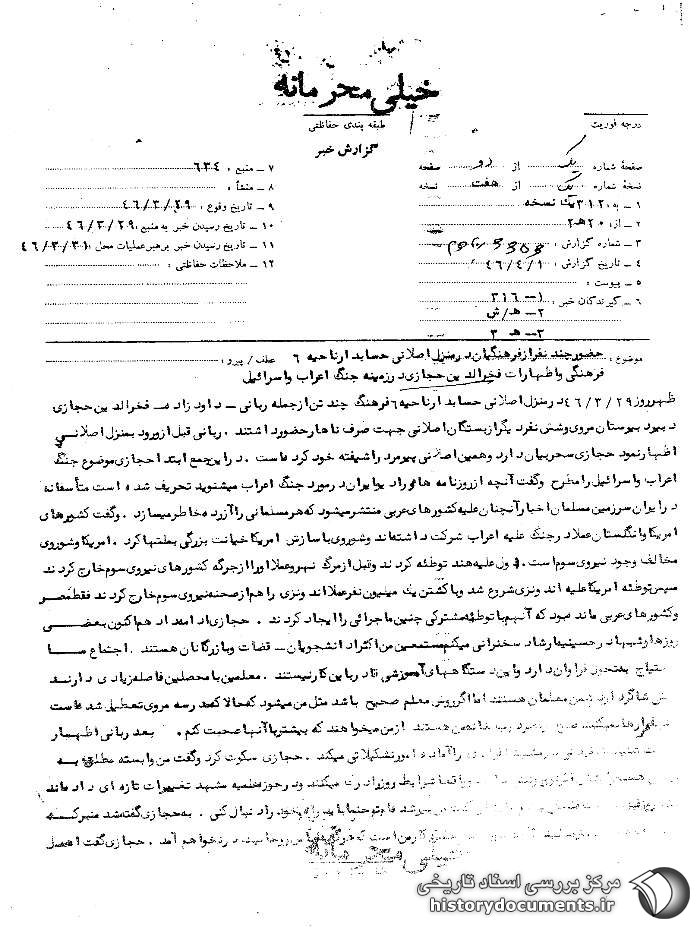 خیلی محرمانه
درجه فوریت
طبقه بندی حفاظتی
گزارش خبر
صفحهٔ شماره یک از دو صفحه
نسخهٔ شماره یک از هفت نسخه
۱ – به : ۳۱۲ یک نسخه
۲ – از : ۲۰ هـ ۲
۳ – شماره گزارش :
۴ – تاریخ گزارش : ۴۶/۴/۱
۵ – پیوست :
۶ – گیرندگان خبر : ۱ – ۳۱۶
۲ – هـ/ش
۳ – هـ ۳
۷ – منبع : ۶۳۴
۸ – منشأ :
۹ – تاریخ وقوع : ۴۶/۳/۲۹
۱۰ – تاریخ رسیدن خبر به منبع : ۴۶/۳/۲۹
۱۱ – تاریخ رسیدن خبر برهبر عملیات محل : ۴۶/۳/۳۱
۱۲ – ملاحظات حفاظتی :
موضوع : حضور چند نفر از فرهنگیان در منزل اصلانی حسابدار ناحیه ۶ عطف / پیرو :
فرهنگی و اظهارات فخرالدین حجازی در زمینه جنگ اعراب و اسرائیل
ظهر روز ۴۶/۳/۲۹ در منزل اصلانی حسابدار ناحیه ۶ فرهنگ چند تن از جمله ربانی – داودزاده – فخرالدین حجازی
دبیر دبیرستان مروی و شش نفر دیگر از بستگان اصلانی جهت صرف ناهار حضور داشتند . ربانی قبل از ورود بمنزل اصلانی
اظهار نمود حجازی سحر بیان دارد و همین اصلانی پیرمرد را شیفته خود کرده است . در این جمع ابتدا حجازی موضوع جنگ
اعراب و اسرائیل را مطرح و گفت آنچه از روزنامه ها و رادیو ایران در مورد جنگ اعراب میشنوید تحریف شده است متأسفانه
در ایران سرزمین مسلمان اخبار آنچنان علیه کشورهای عربی منتشر میشود که هر مسلمانی را آزرده خاطر میسازد . و گفت کشورهای
امریکا و انگلستان عملا در جنگ علیه اعراب شرکت داشته اند و شوروی با سازش امریکا خیانت بزرگی بملتها کرد . امریکا و شوروی
مخالف وجود نیروی سوم است . اول علیه هند توطئه کردند و قبل از مرگ نهرو عملا او را از جرگه کشورهای نیروی سوم خارج کردند
سپس توطئه امریکا علیه اندونزی شروع شد و با کشتن یک میلیون نفر عملا اندونزی را هم از صحنه نیروی سوم خارج کردند فقط مصر
و کشورهای عربی مانده بود که آنهم با توطئه مشترکی چنین ماجرائی را ایجاد کردند . حجازی ادامه داد هم اکنون بعضی
روزها و شبها در حسینیه ارشاد سخنرانی میکنم مستمعین من اکثرا دانشجویان – قضات و بازرگانان هستند . اجتماع ما
احتیاج به تحول فراوان دارد و این دستگاههای آموزشی قادر باین کار نیستند . معلمین با محصلین فاصله زیادی دارند
شاگردان دشمن معلمان هستند اما اگر روش معلم صحیح باشد مثل من میشود که حالا که مدرسه مروی تعطیل شده است
هستند از من میخواهند که بیشتر با آنها صحبت کنم . بعد ربانی اظهار
را آماده امور تشکیلاتی میکند . حجازی سکوت کرد و گفت من وابسته مطلق به
شرایط روز را درک میکنند و در حوزه علمیه مشهد تغییرات تازه ای داده اند
را دنبال کنی . به حجازی گفته شد منبر که
کار من است که در خواهم آمد . حجازی گفت اصل
خیلی محرمانه
مرکز بررسی اسناد تاریخی
historydocuments.ir